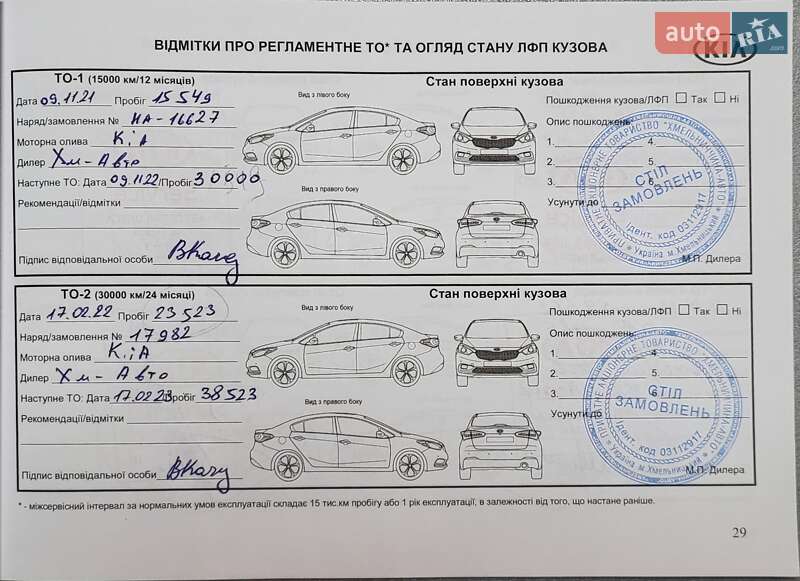 auto RIA .com
ВІДМІТКИ ПРО РЕГЛАМЕНТНЕ ТО* ТА ОГЛЯД СТАНУ ЛФП КУЗОВА
KIA
ТО-1 (15000 км/12 місяців)
Стан поверхні кузова
Дата 09.11.21 Пробіг 15 549
Вид з лівого боку
Пошкодження кузова/ЛФП Так Ні
Наряд/замовлення № НА-16627
Опис пошкоджень
Моторна олива KiA
1. 4.
Дилер Хм-Авто
2. 5.
Наступне ТО: Дата 09.11.22/Пробіг 30000
3. 6.
Рекомендації/відмітки
Вид з правого боку
Усунути до
Підпис відповідальної особи
М.П. Дилера
ПРИВАТНЕ АКЦІОНЕРНЕ ТОВАРИСТВО "ХМЕЛЬНИЧЧИНА-АВТО"
СТІЛ
ЗАМОВЛЕНЬ
Ідент. код 03112917
Україна м.Хмельницький
ТО-2 (30000 км/24 місяці)
Стан поверхні кузова
Дата 17.02.22 Пробіг 23523
Вид з лівого боку
Пошкодження кузова/ЛФП Так Ні
Наряд/замовлення № 17982
Опис пошкоджень
Моторна олива KiA
1. 4.
Дилер Хм-Авто
2. 5.
Наступне ТО: Дата 17.02.23 Пробіг 38523
3. 6.
Рекомендації/відмітки
Вид з правого боку
Усунути до
Підпис відповідальної особи
М.П. Дилера
ПРИВАТНЕ АКЦІОНЕРНЕ ТОВАРИСТВО "ХМЕЛЬНИЧЧИНА-АВТО"
СТІЛ
ЗАМОВЛЕНЬ
Ідент. код 03112917
Україна м.Хмельницький
* - міжсервісний інтервал за нормальних умов експлуатації складає 15 тис.км пробігу або 1 рік експлуатації, в залежності від того, що настане раніше.
29